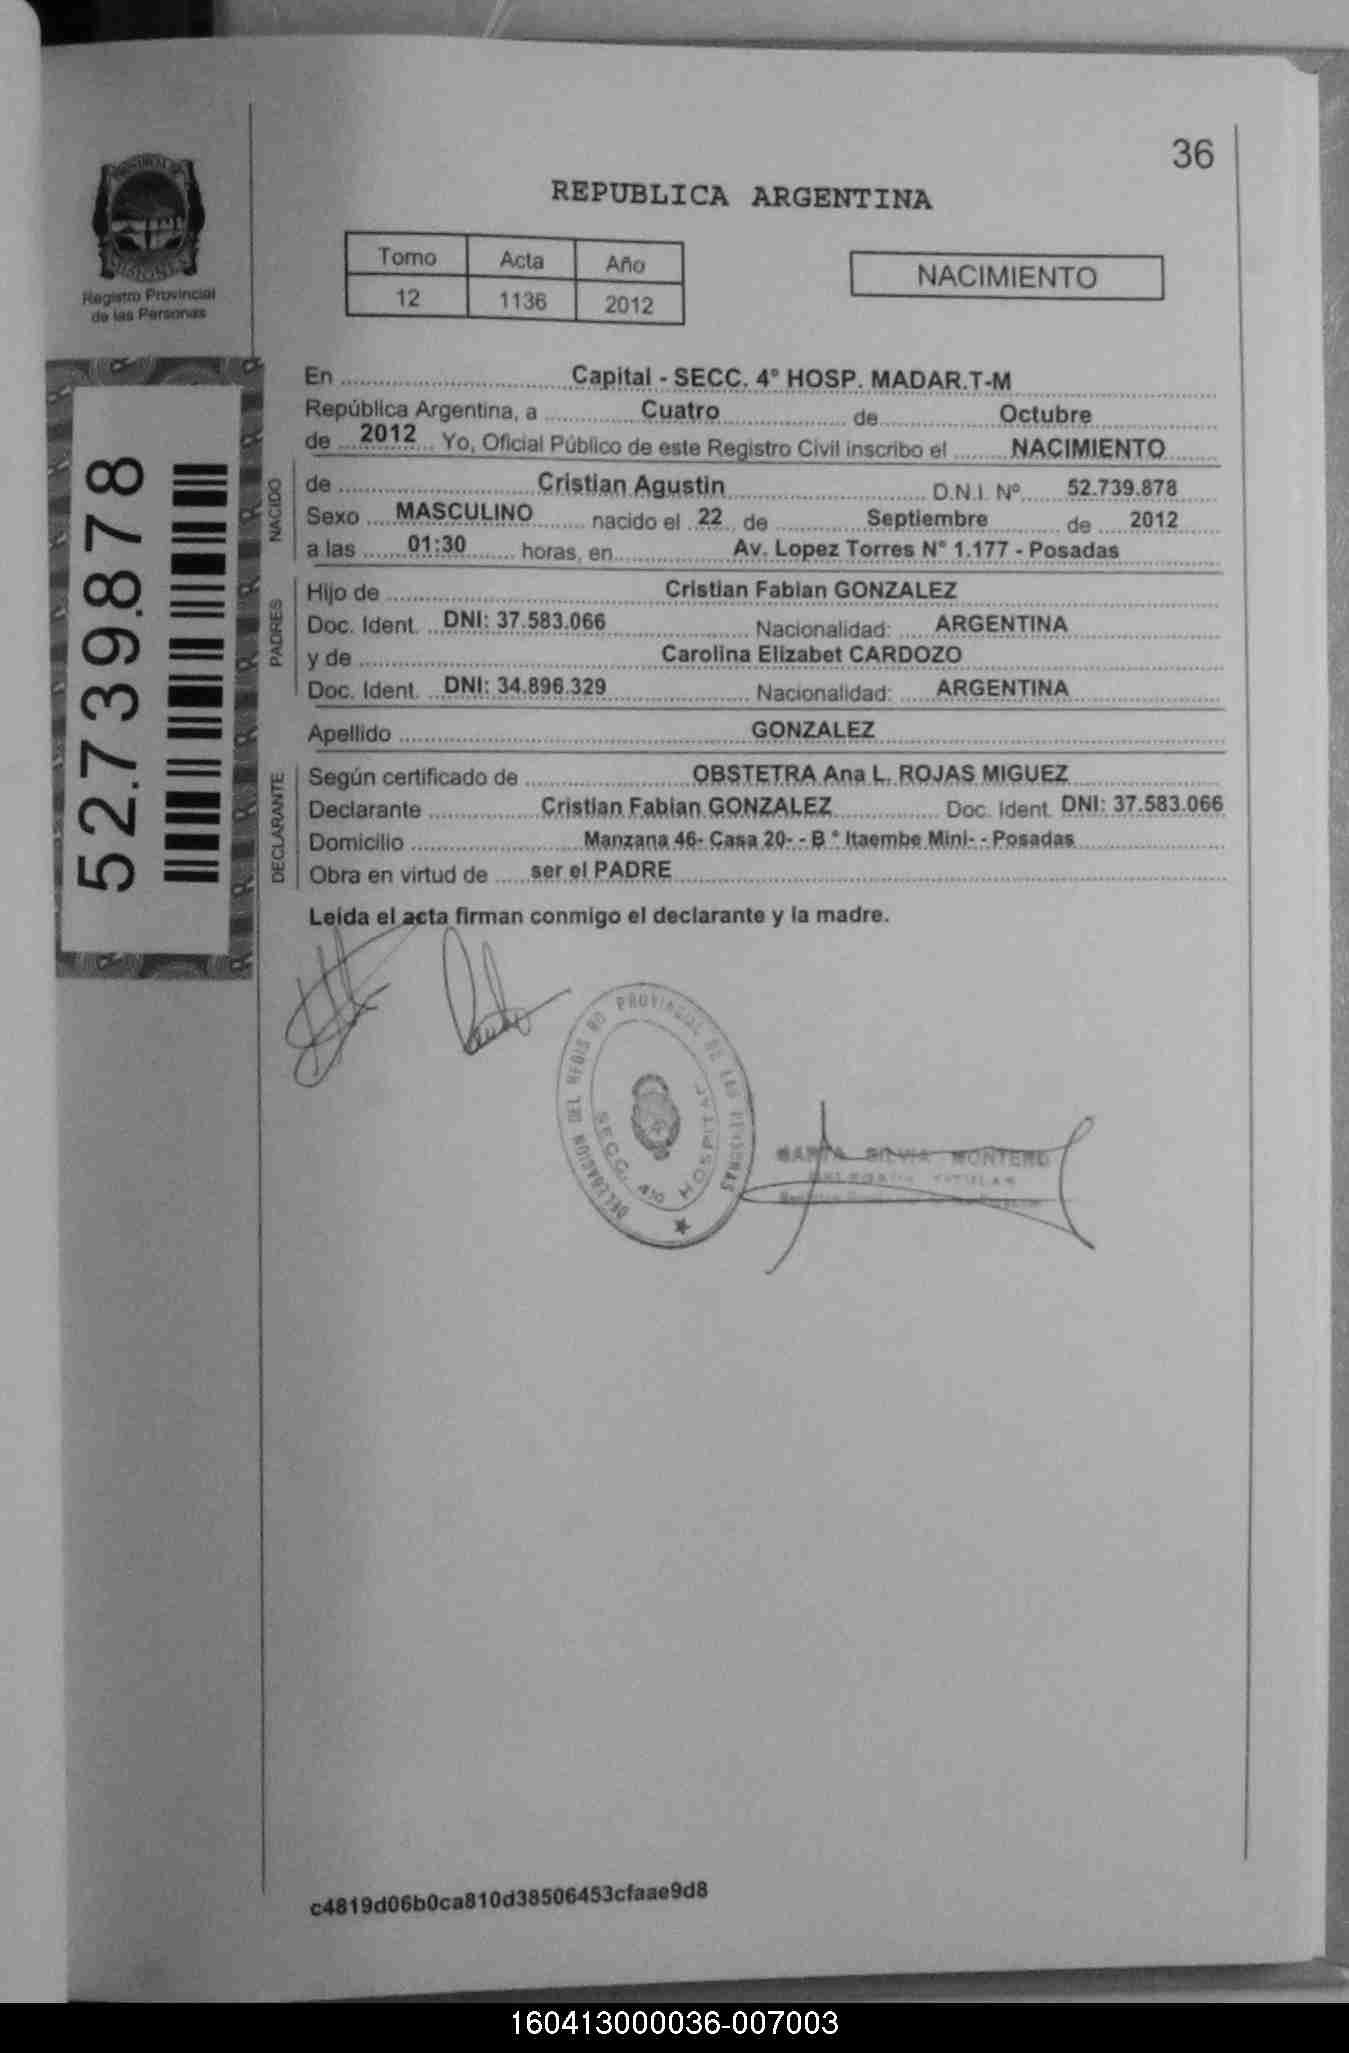 36
REPUBLICA ARGENTINA
Registro Provincial
de las Personas
Tomo Acta Año
12 1136 2012
NACIMIENTO
52.739.878
En Capital - SECC. 4° HOSP. MADAR.T-M
República Argentina, a Cuatro de Octubre
de 2012 Yo, Oficial Público de este Registro Civil inscribo el NACIMIENTO
NACIDO
de Cristian Agustin D.N.I. N° 52.739.878
Sexo MASCULINO nacido el 22 de Septiembre de 2012
a las 01:30 horas, en Av. Lopez Torres N° 1.177 - Posadas
PADRES
Hijo de Cristian Fabian GONZALEZ
Doc. Ident. DNI: 37.583.066 Nacionalidad: ARGENTINA
y de Carolina Elizabet CARDOZO
Doc. Ident. DNI: 34.896.329 Nacionalidad: ARGENTINA
Apellido GONZALEZ
DECLARANTE
Según certificado de OBSTETRA Ana L. ROJAS MIGUEZ
Declarante Cristian Fabian GONZALEZ Doc. Ident. DNI: 37.583.066
Domicilio Manzana 46- Casa 20- - B ° Itaembe Mini- - Posadas
Obra en virtud de ser el PADRE
Leida el acta firman conmigo el declarante y la madre.
DELEGACION DEL REGISTRO PROVINCIAL DE LAS PERSONAS
SECC. 4TO HOSPITAL
SILVIA MONTERO
c4819d06b0ca810d38506453cfaae9d8
160413000036-007003